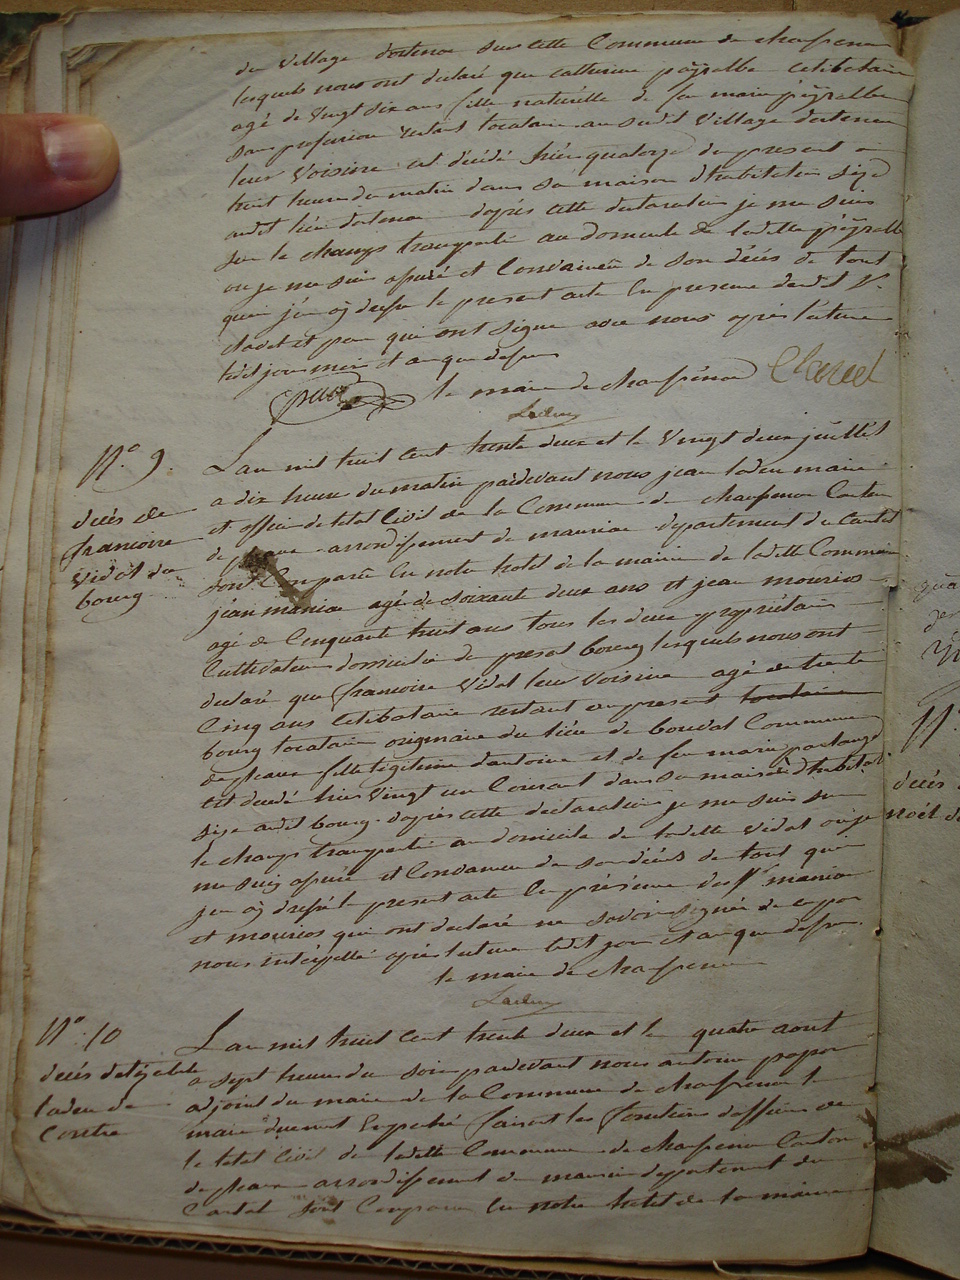 du village dostenac sur cette Commune de chaussenac
lesquels nous ont declaré que catherine peyralbe celibataire
agé de vingt six ans fille naturelle de feu marie peyralbe
sans profession restant locataire au susdit village dostenac
leur voisine est décédé hier quatorze du present a
huit heure du matin dans sa maison d'habitation size
audit lieu dostenac daprès cette declaration je me suis
sur le champs transporté au domicile de ladite peyralbe
ou je me suis assuré et Convaincu de son décés de tout
quoi j'en ai dressé le present acte En presence desdits Sr
et qui ont signé avec nous après lecture
ledit jour mois et an que dessus
le maire de chaussenac
Ladeu
N.º 9.
décés de
francoise
Vidal du
bourg
Lan mil huit cent trente deux et le vingt deux juillet
a dix heure du matin pardevant nous jean ladeu maire
et officier de létat Civil de la Commune de chaussenac Canton
de pleaux arrondissement de mauriac departement du Cantal
sont Comparu En notre hotel de la mairie de ladite Commune
jean maniac agé de soixante deux ans et jean mourios
agé de Cinquante huit ans tous les deux propriétaire
Cultivateur domicilié du presat bourg lesquels nous ont
declaré que francoise Vidal leur voisine agé de trente
Cinq ans Celibataire restant au present locataire
bourg locataire originaire du lieu de bouval Commune
de pleaux fille légitime d'antoine et de feu marie
est décédé hier vingt un Courant dans sa maison d'habitat.
size audit bourg. daprès cette declaration je me suis sur
le champs transporté au domicile de ladite Vidal ou je
me suis assuré et Convaincu de son décés de tout quoi
jen ai dressé le present acte En présence des Sr maniac
et mourios qui ont declaré ne savoir signer de ce par
nous intérpellé après lecture ledit jour et an que dessus.
le maire de chaussenac
Ladeu
N.º 10
décés
ladeu de
Contre
Lan mil huit cent trente deux et le quatre aout
a sept heure du soir pardevant nous antoine
adjoint du maire de la Commune de chaussenac le
maire duement Empeché faisant les fonctions dofficier de
le létat Civil de ladite Commune de chaussenac Canton
de pleaux arrondissement de mauriac departement du
Cantal sont Comparu En notre hotel de la mairie
N.º
décés
noël